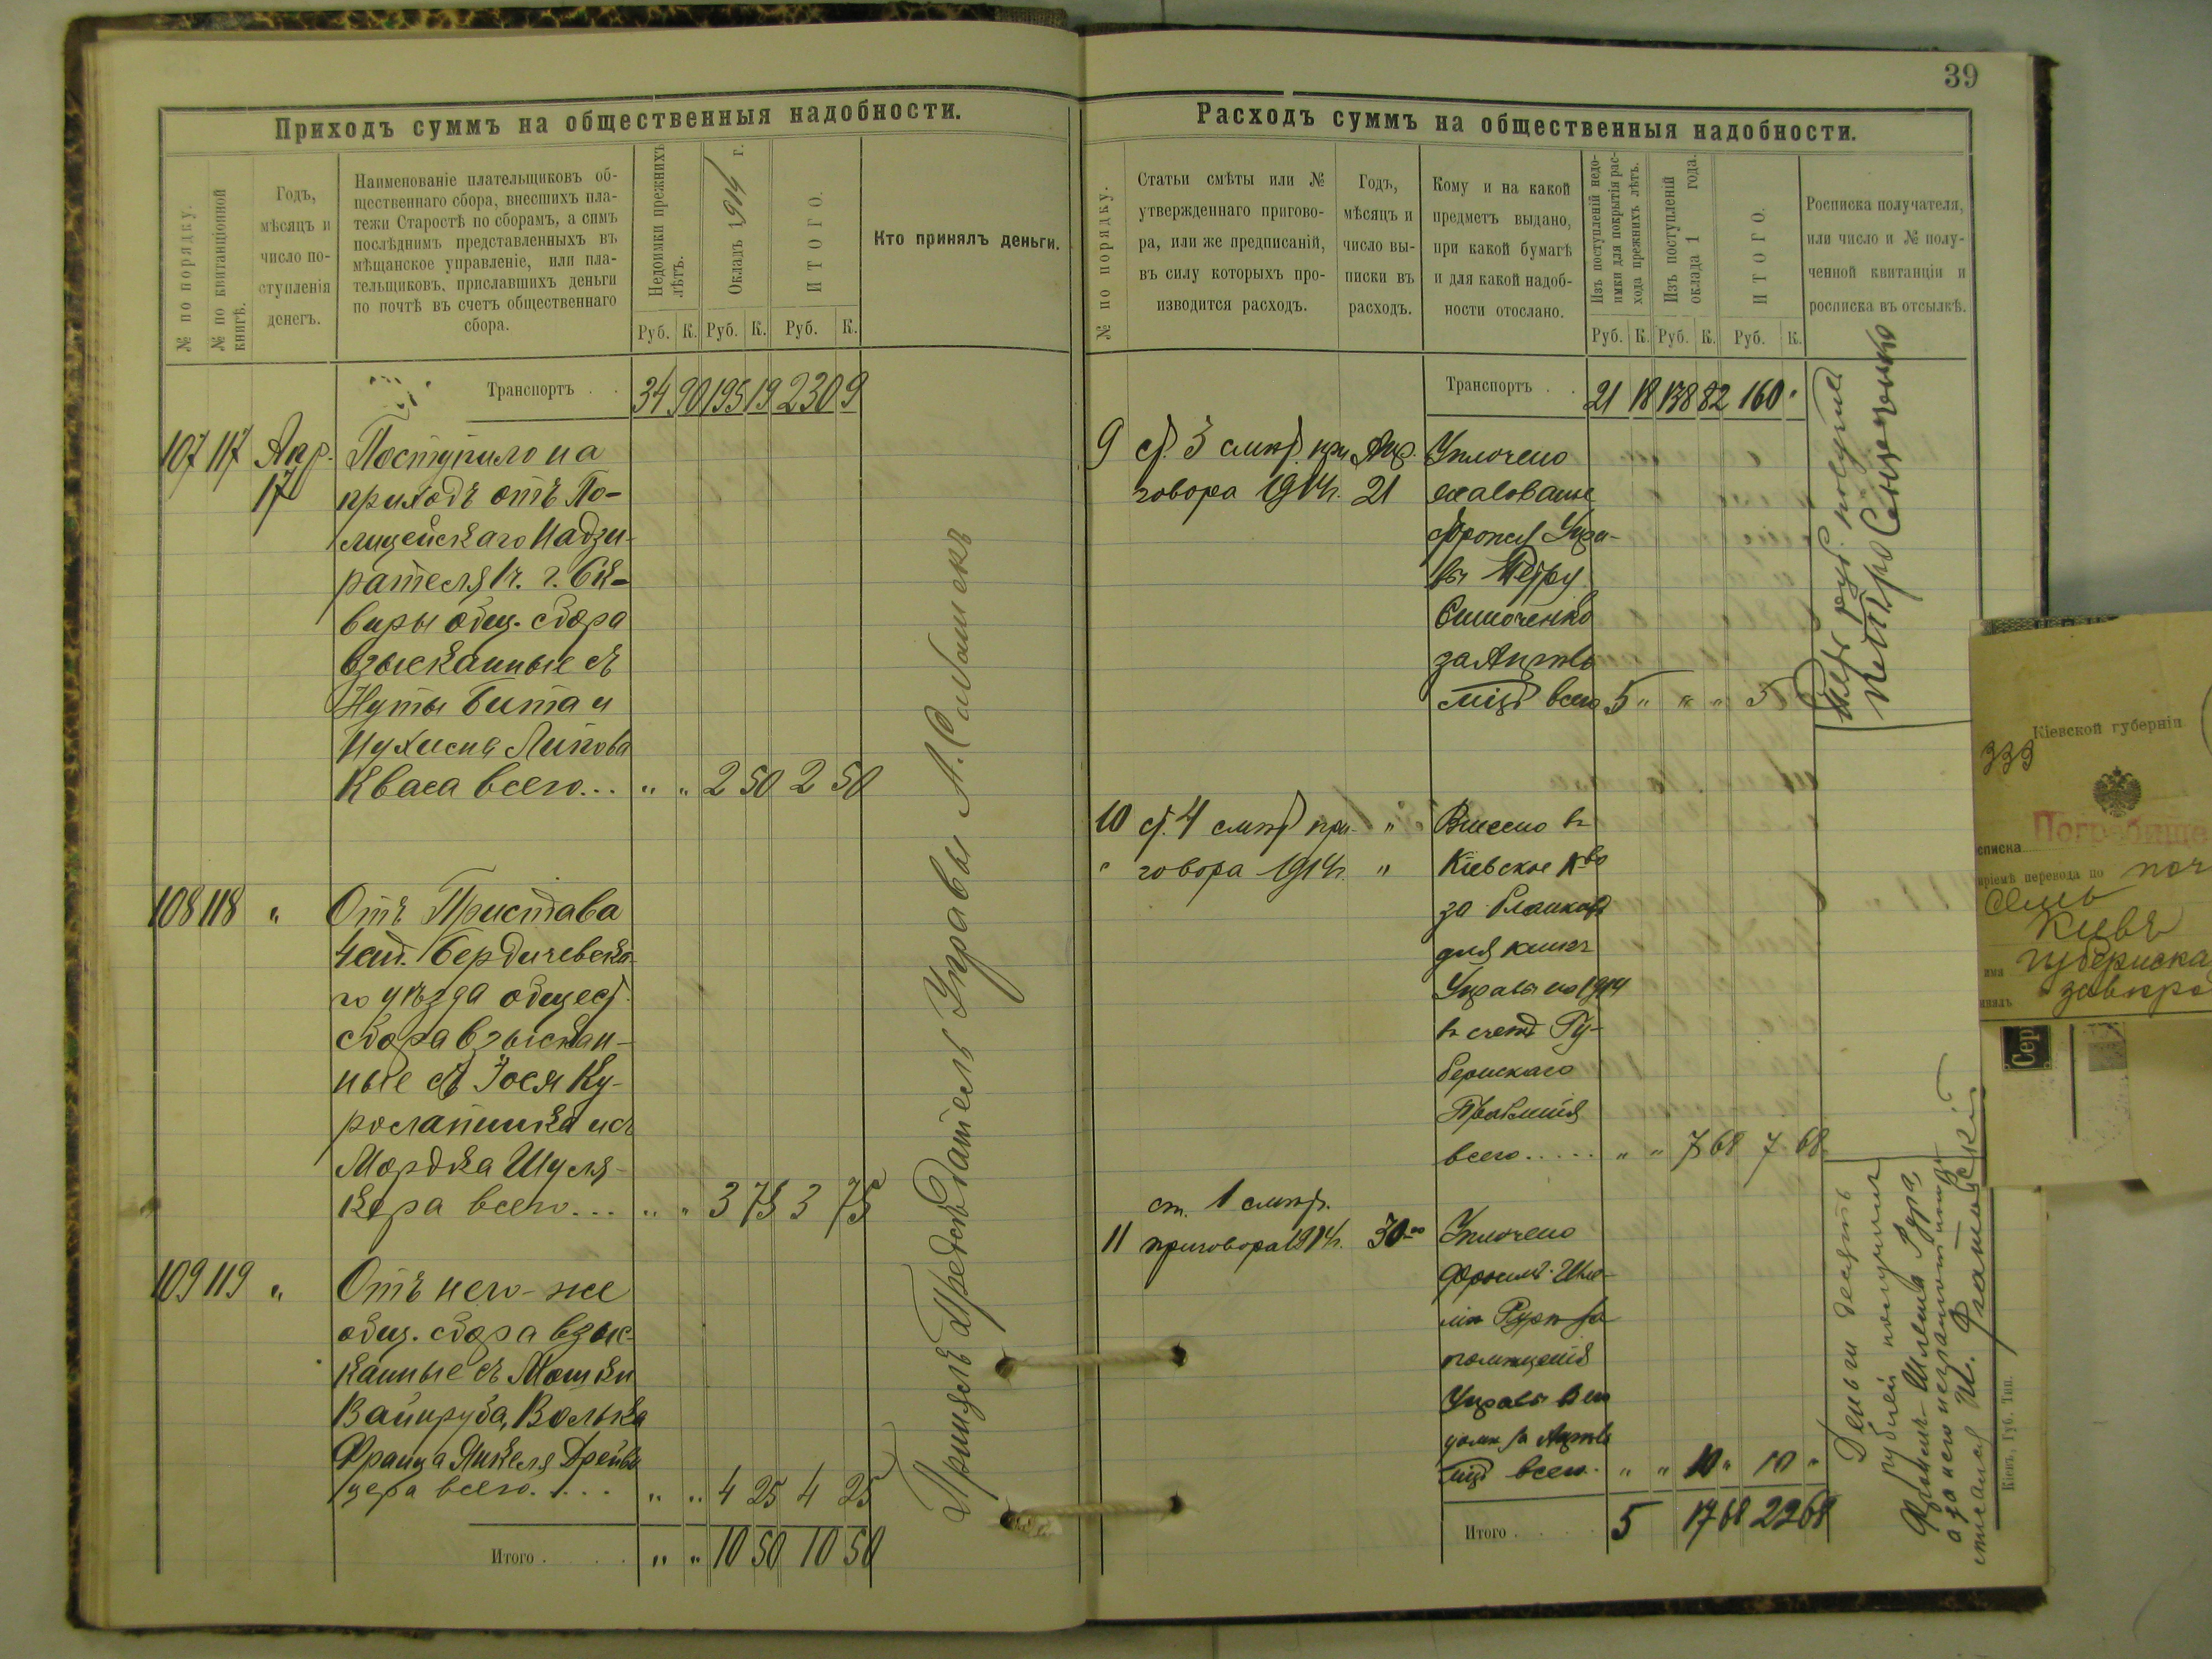 39
Приходъ суммъ на общественныя надобности.
№ по порядку.
№ по квитанціонной
книгѣ.
Годъ,
мѣсяцъ и
число по-
ступленія
денегъ.
Наименованіе плательщиковъ об-
щественнаго сбора, внесшихъ пла-
тежи Старостѣ по сборамъ, а симъ
послѣднимъ представленныхъ въ
мѣщанское управленіе, или пла-
тельщиковъ, приславшихъ деньги
по почтѣ въ счетъ общественнаго
сбора.
Недоимки прежнихъ
лѣтъ.
Окладъ 1914 г.
ИТОГО.
Кто принялъ деньги.
Руб. К. Руб. К. Руб. К.
Транспортъ . . 34 90 195 19 230 9
107 117 Апр. Поступило на
17 приходъ отъ По-
лицейскаго Надзи-
рателя 1ч. г. Ск-
виры общ. сбора
взысканные съ
Нуты Бита и
Кваса всего... " " 2 50 2 50
108 118 " Отъ Пристава
4 ст. Бердичевска-
го уѣзда общест.
сбора взыскан-
ные съ Іося Ку-
и съ
Мордка Шуля-
кера всего... " " 3 75 3 75
109 119 " Отъ него-же
общ. сбора взыс-
канные съ Мошки
Вайнруба, Волька
Франца Янкеля
цера всего.... " " 4 25 4 25
Итого . . . . " " 10 50 10 50
Принялъ Предсѣдатель Управы Л.
Расходъ суммъ на общественныя надобности.
№ по порядку.
Статьи смѣты или №
утвержденнаго пригово-
ра, или же предписаній,
въ силу которыхъ про-
изводится расходъ.
Годъ,
мѣсяцъ и
число вы-
писки въ
расходъ.
Кому и на какой
предметъ выдано,
при какой бумагѣ
и для какой надоб-
ности отослано.
Изъ поступленій недо-
имки для покрытія рас-
хода прежнихъ лѣтъ.
Изъ поступленій
оклада 1 года.
ИТОГО.
Росписка получателя,
или число и № полу-
ченной квитанціи и
росписка въ отсылкѣ.
Руб. К. Руб. К. Руб. К.
Транспортъ . . 21 18 138 82 160 "
9 ст. 3 смѣт. при Апр. Уплочено
говора 1914г. 21 жалованье
Упра-
вы Петру
Симоченко
за Апрель
мѣс. всего 5 " " " 5
Пять руб. получил
Петро Симоченко
10 ст. 4 смѣт. при- " Внесено въ
" говора 1914г. " Кіевское К-во
за бланки
для книгъ
Управы на 1914
въ счетъ Гу-
бернскаго
Правленія
всего..... " " 7 68 7 68
ст. 1 смѣт.
11 приговора 1914г. 30-го Уплочено
Шле-
за
помѣщеніе
Управы въ его
домѣ за Апрель
мѣс. всего. " " 10 " 10 "
Итого . . . . 5 17 68 22 68
Деньги десять
рублей получилъ
а за него неграмотнаго
Кіевъ, Губ. Тип.
Кіевской губерніи
339
Погребище
списка
пріемѣ перевода по поч
Семь
Кіевъ
имя Губернска
за
Сер